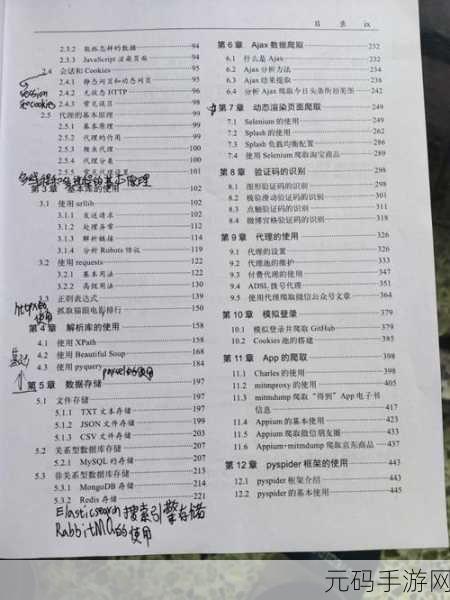 目 录 ix
2.3.2 能抓怎样的数据 94
2.3.3 JavaScript 渲染页面 94
2.4 会话和 Cookies 95
2.4.1 静态网页和动态网页 95
2.4.2 无状态 HTTP 96
2.4.3 常见误区 98
session
和cookies
2.5 代理的基本原理 99
2.5.1 基本原理 99
2.5.2 代理的作用 99
2.5.3 爬虫代理 100
2.5.4 代理分类 100
2.5.5 常见代理设置 101
多线程和多进程的基本原理
第 3 章 基本库的使用 102
3.1 使用 urllib 102
3.1.1 发送请求 102
3.1.2 处理异常 112
3.1.3 解析链接 114
3.1.4 分析 Robots 协议 119
3.2 使用 requests 122
3.2.1 基本用法 122
3.2.2 高级用法 130
3.3 正则表达式 139
3.4 抓取猫眼电影排行 150
httpx的
使用
第 4 章 解析库的使用 158
4.1 使用 XPath 158
4.2 使用 Beautiful Soup 168
4.3 使用 pyquery 184
parsel的使用
第 5 章 数据存储 197
5.1 文件存储 197
5.1.1 TXT 文本存储 197
5.1.2 JSON 文件存储 199
5.1.3 CSV 文件存储 203
5.2 关系型数据库存储 207
5.2.1 MySQL 的存储 207
5.3 非关系型数据库存储 213
5.3.1 MongoDB 存储 214
5.3.2 Redis 存储 221
Elasticsearch 搜索引擎存储
RabbitMQ的使用
第 6 章 Ajax 数据爬取 232
6.1 什么是 Ajax 232
6.2 Ajax 分析方法 234
6.3 Ajax 结果提取 238
6.4 分析 Ajax 爬取今日头条街拍美图 242
第 7 章 动态渲染页面爬取 249
7.1 Selenium 的使用 249
7.2 Splash 的使用 262
7.3 Splash 负载均衡配置 286
7.4 使用 Selenium 爬取淘宝商品 289
第 8 章 验证码的识别 298
8.1 图形验证码的识别 298
8.2 极验滑动验证码的识别 301
8.3 点触验证码的识别 311
8.4 微博宫格验证码的识别 318
第 9 章 代理的使用 326
9.1 代理的设置 326
9.2 代理池的维护 333
9.3 付费代理的使用 347
9.4 ADSL 拨号代理 351
9.5 使用代理爬取微信公众号文章 364
第 10 章 模拟登录 379
10.1 模拟登录并爬取 GitHub 379
10.2 Cookies 池的搭建 385
第 11 章 App 的爬取 398
11.1 Charles 的使用 398
11.2 mitmproxy 的使用 405
11.3 mitmdump 爬取“得到”App 电子书
信息 417
11.4 Appium 的基本使用 423
11.5 Appium 爬取微信朋友圈 433
11.6 Appium+mitmdump 爬取京东商品 437
第 12 章 pyspider 框架的使用 443
12.1 pyspider 框架介绍 443
12.2 pyspider 的基本使用 445
元码手游网